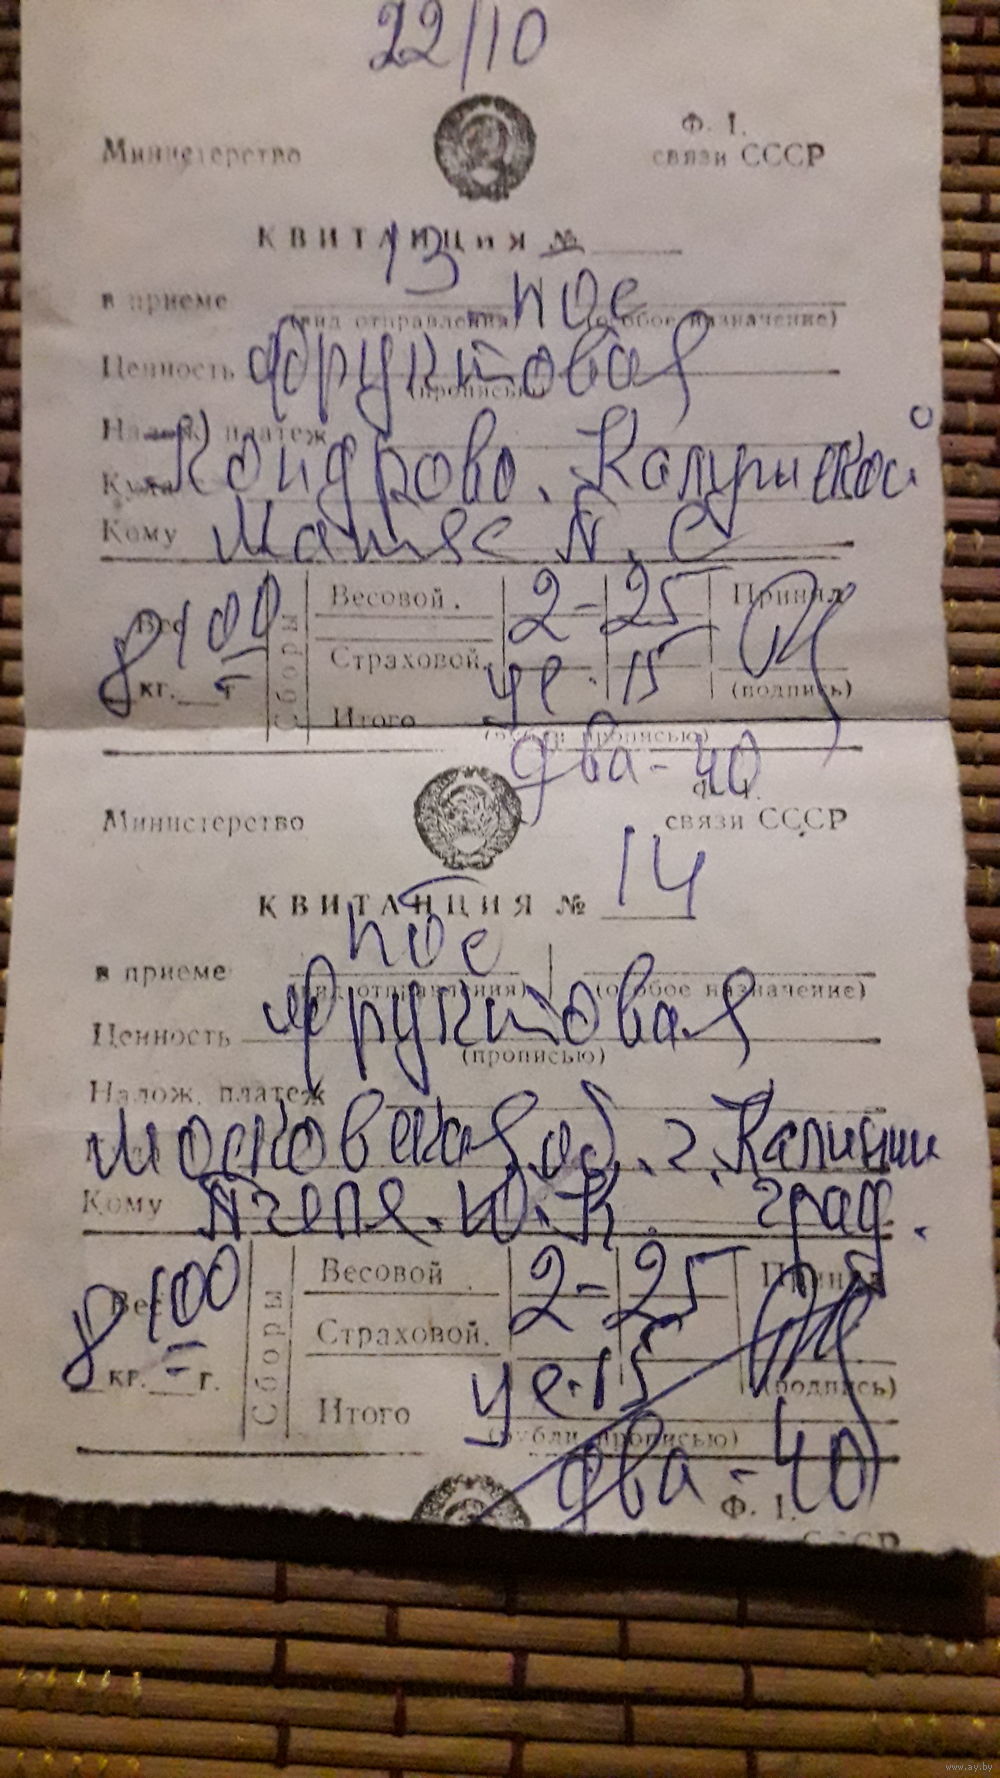 22/10
Министерство
Ф. 1.
связи СССР
КВИТАНЦИЯ № 13
в приеме пос
(вид отправления) (особое назначение)
Ценность фруктовая
(прописью)
Налож. платеж
Куда Кондрово. Калужской
Кому
Вес 8 кг. 100 г
Сборы
Весовой. 2-25
Принял
Страховой. це. 15
(подпись)
Итого два-40
(рубли прописью)
Министерство
Ф. 1.
связи СССР
КВИТАНЦИЯ № 14
в приеме пос
(вид отправления) (особое назначение)
Ценность фруктовая
(прописью)
Налож. платеж
Московская об. г. Калинин
град.
Кому
Вес 8 кг. 100 г.
Сборы
Весовой 2-25
Принял
Страховой. це. 15
(подпись)
Итого два-40
(рубли прописью)
Ф. 1.
СССР
www.ay.by